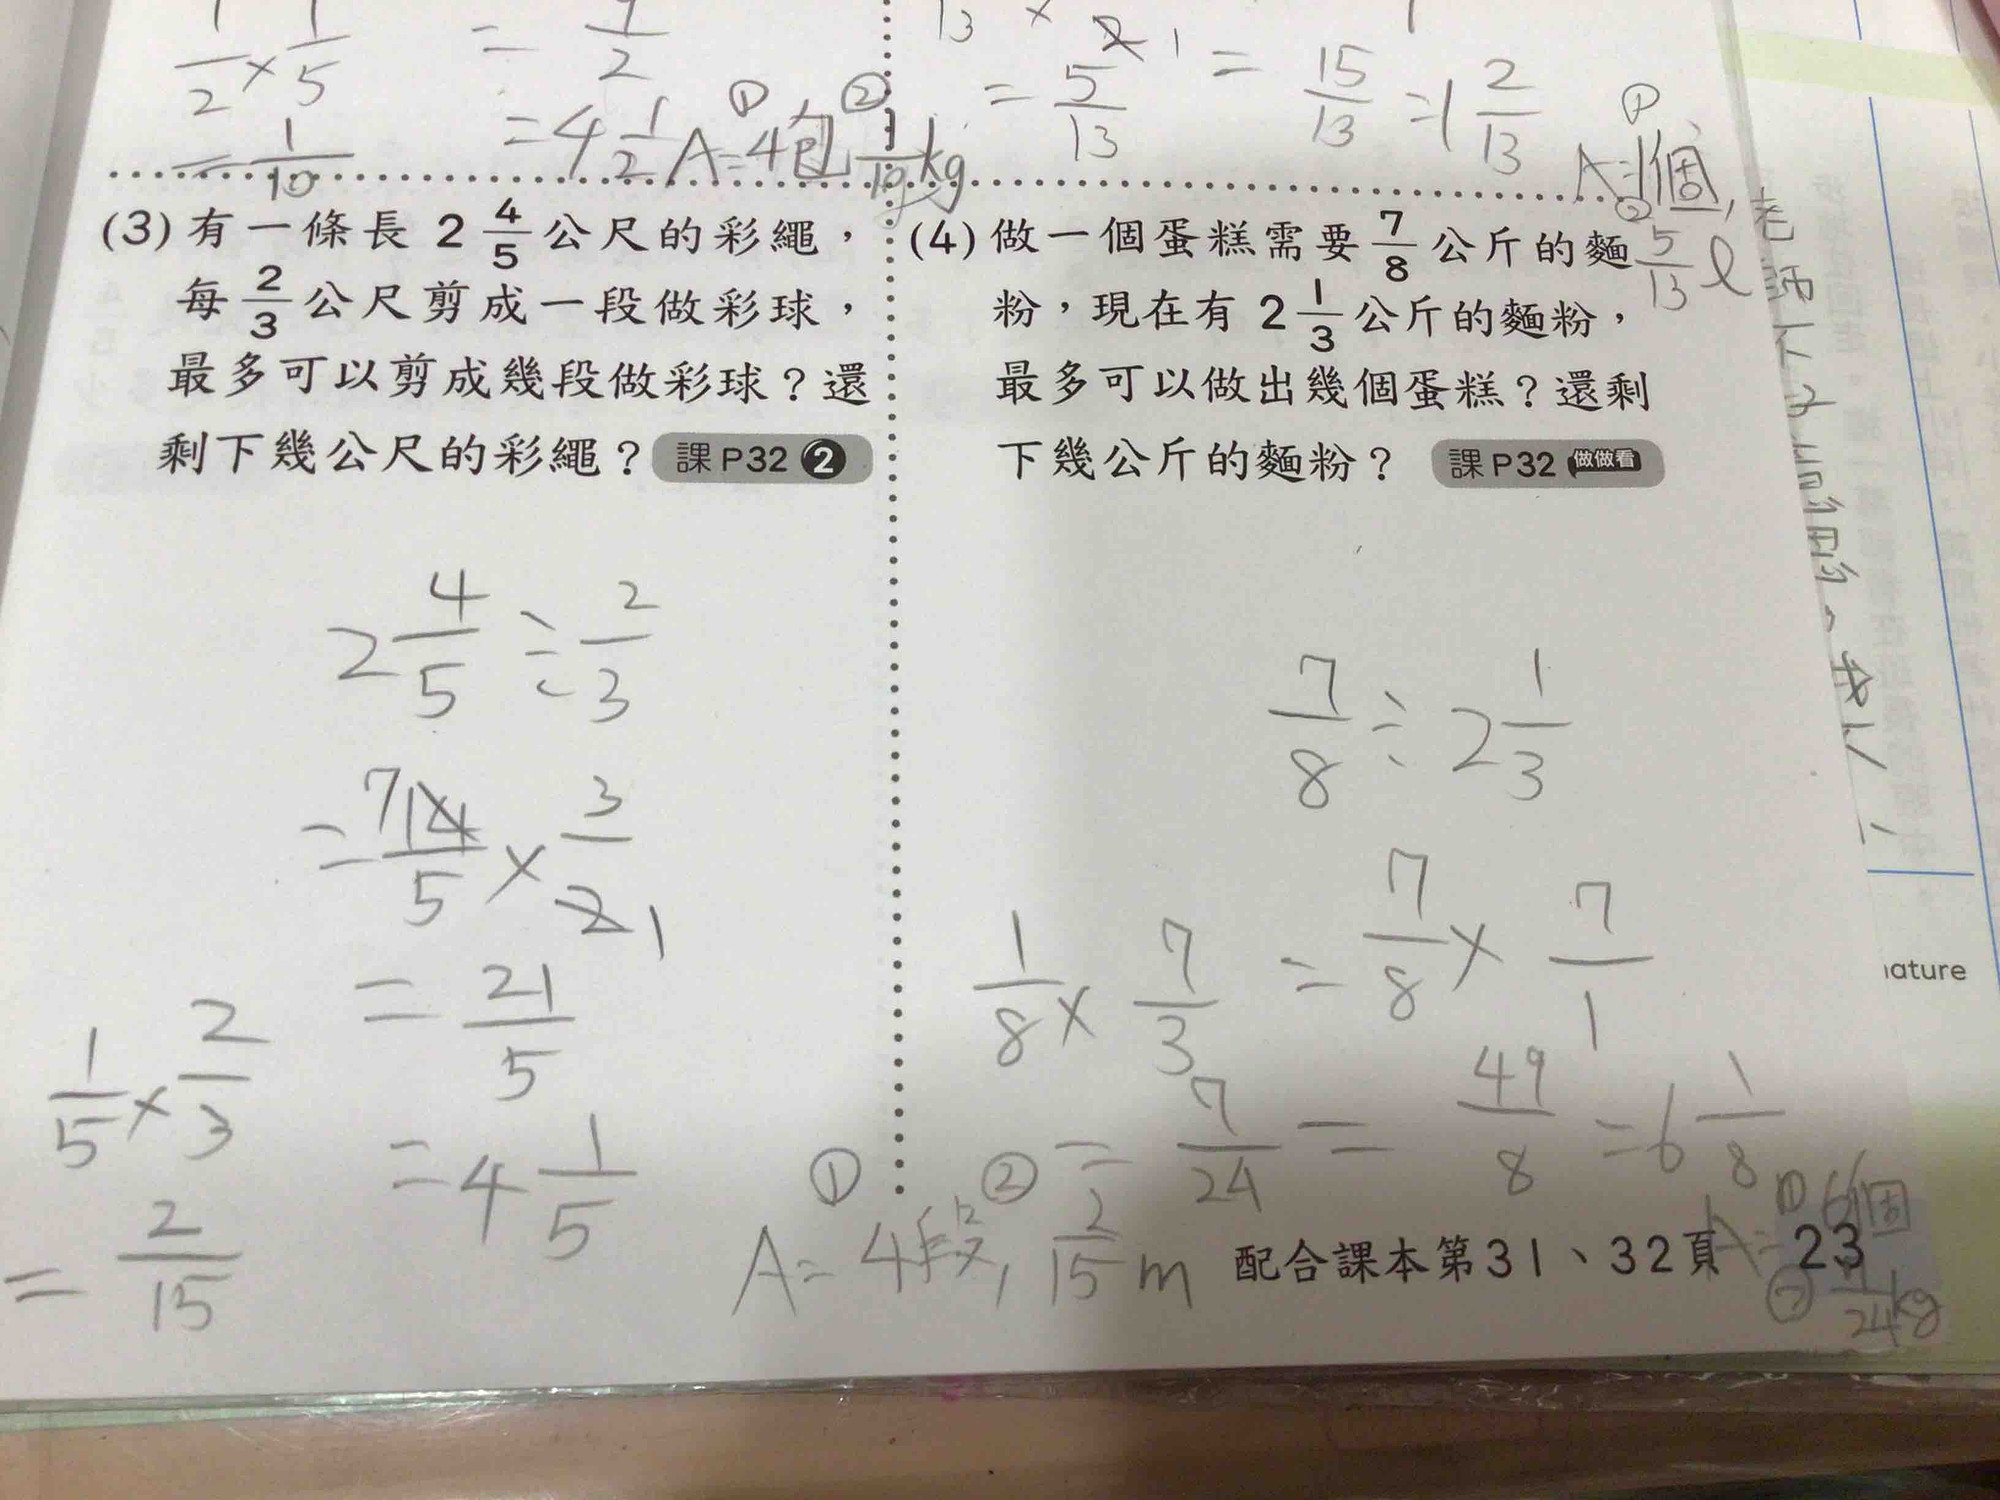 1/2 × 1/5
= 1/10
= 9/2
= 4 1/2
A= ① 4包 ② 1/10 kg
= 5/13
= 15/13 = 1 2/13
A= ① 1個, ② 5/13 l
(3) 有一條長 2 4/5 公尺的彩繩，
每 2/3 公尺剪成一段做彩球，
最多可以剪成幾段做彩球？還
剩下幾公尺的彩繩？ 課P32 ❷
2 4/5 ÷ 2/3
= 7 14/5 × 3/2 1
= 21/5
= 4 1/5
1/5 × 2/3
= 2/15
A= ① 4段, ② 2/15 m
(4) 做一個蛋糕需要 7/8 公斤的麵
粉，現在有 2 1/3 公斤的麵粉，
最多可以做出幾個蛋糕？還剩
下幾公斤的麵粉？ 課P32 做做看
7/8 ÷ 2 1/3
= 7/8 × 7/1
= 49/8 = 6 1/8
1/8 × 7/3
= 7/24
A= ① 6個
② 7/24 kg
配合課本第31、32頁 23
nature